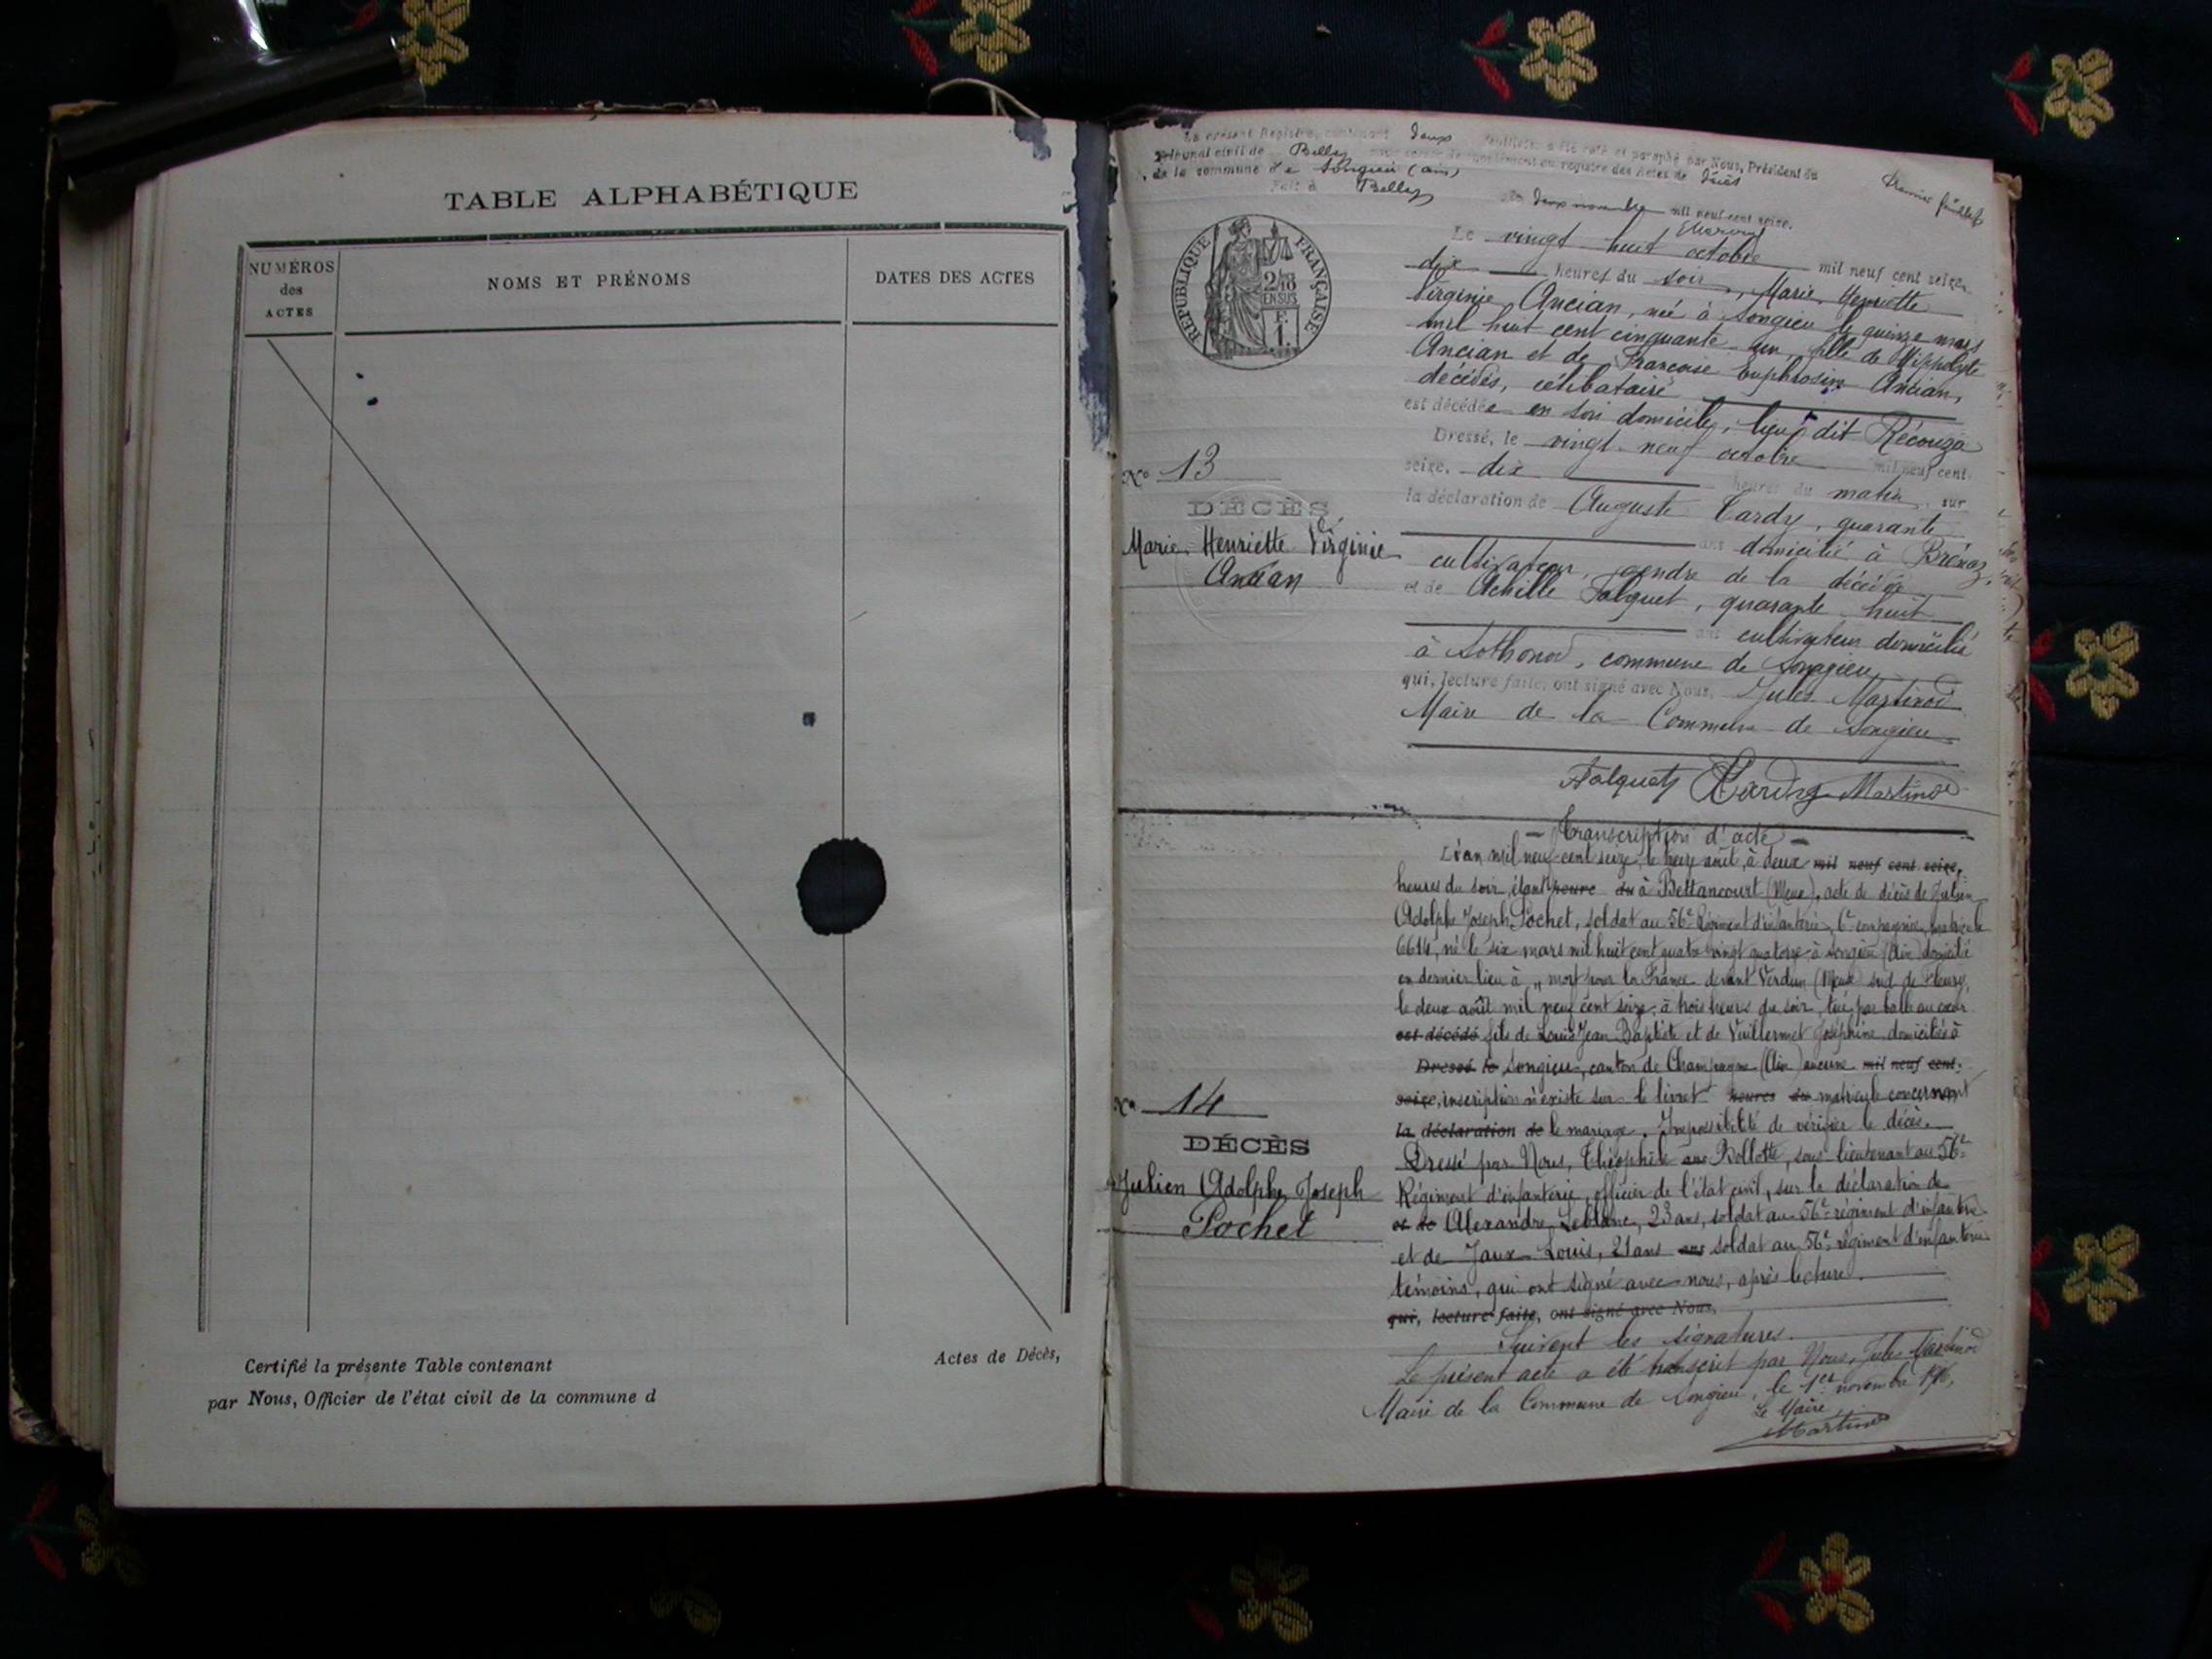 TABLE ALPHABÉTIQUE
NUMÉROS
des
ACTES
NOMS ET PRÉNOMS
DATES DES ACTES
Certifié la présente Table contenant
Actes de Décès,
par Nous, Officier de l'état civil de la commune d
Le présent Registre, contenant deux feuillets, a été coté et paraphé par Nous, Président du
Tribunal civil de Belley pour servir de supplément au registre des Actes de décès
de la commune de Songieu (ain)
Fait à Belley
deux novembre mil neuf cent seize.
Premier feuillet
RÉPUBLIQUE FRANÇAISE
2/10
EN SUS
F.
1.
Le vingt huit octobre mil neuf cent seize,
dix heures du soir, Marie Henriette
Virginie Ancian, née à Songieu le quinze mars
mil huit cent cinquante un, fille de Hippolyte
Ancian et de Françoise Euphrosine Ancian,
décédés, célibataire
est décédée en son domicile, lieu dit Récouza
Dressé, le vingt neuf octobre mil neuf cent
seize, dix heures du matin, sur
la déclaration de Auguste Tardy, quarante
ans domicilié à Brénaz,
cultivateur, gendre de la décédée
et de Achille Falquet, quarante huit
ans cultivateur domicilié
à Sothonod, commune de Songieu
qui, lecture faite, ont signé avec Nous, Jules Martinod
Maire de la Commune de Songieu
Falquet Tardy Martinod
No 13
DÉCÈS
Marie Henriette Virginie
Ancian
Transcription d'acte
L'an mil neuf cent seize, le treize août, à deux mil neuf cent seize,
heures du soir, étant heure du à Bettancourt (Meuse), acte de décès de Julien
Adolphe Joseph Pochet, soldat au 56e Régiment d'infanterie, 6e compagnie, matricule
6614, né le six mars mil huit cent quatre vingt quatorze à Songieu (Ain) domicilié
en dernier lieu à " mort pour la France devant Verdun (Meuse) sud de Fleury,
le deux août mil neuf cent seize, à trois heures du soir, tué par balle au cœur
est décédé fils de Louis Jean Baptiste et de Vuillermet Joséphine domiciliés à
Dressé le Songieu, canton de Champagne (Ain) aucune mil neuf cent
seize, inscription n'existe sur le livret heures du matricule concernant
la déclaration de le mariage. Impossibilité de vérifier le décès.
Dressé par Nous, Théophile ans Bollotte, sous-lieutenant au 56e
Régiment d'infanterie, officier de l'état civil, sur la déclaration de
et de Alexandre Leblanc, 23 ans, soldat au 56e régiment d'infanterie
et de Jaux Louis, 21 ans ans soldat au 56e régiment d'infanterie
témoins, qui ont signé avec nous, après lecture.
qui, lecture faite, ont signé avec Nous,
Suivent les signatures.
Le présent acte a été transcrit par Nous, Jules Martinod
Maire de la Commune de Songieu, le 1er novembre 1916,
Le Maire
Martinod
No 14
DÉCÈS
Julien Adolphe Joseph
Pochet